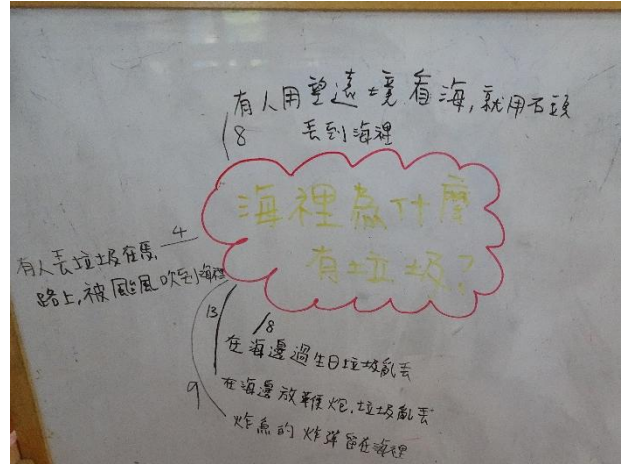 有人用望遠境看海,就用石頭
丟到海裡
8
海裡為什麼
有垃圾?
4
有人丟垃圾在馬
路上,被颱風吹到海裡
13
18
在海邊過生日垃圾亂丟
在海邊放鞭炮,垃圾亂丟
9
炸魚的炸彈留在海裡